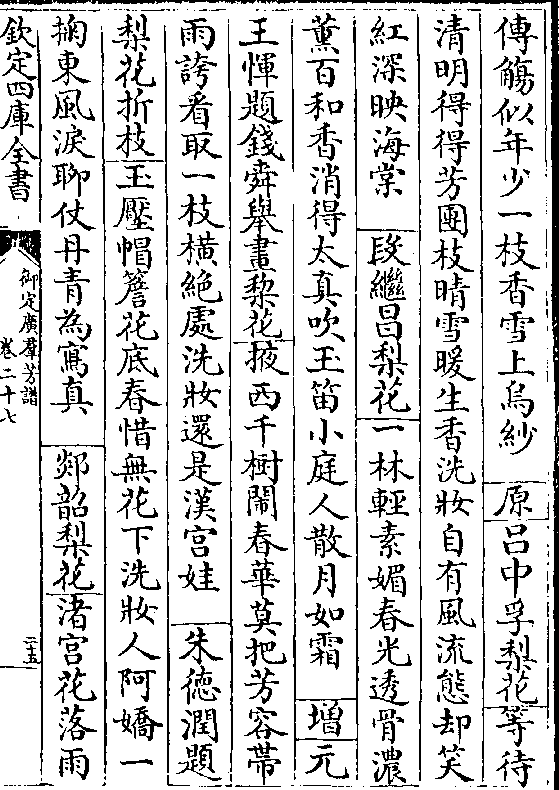 傳觴似年少一枝香雪上烏紗　原吕中孚梨花等待
清明得得芳團枝晴雪暖生香洗妝自有風流態却笑
紅深映海棠　段繼昌梨花一林輕素媚春光透骨濃
薰百和香消得太真吹玉笛小庭人散月如霜　增元
王惲題錢舜舉畫棃花掖西千樹鬧春華莫把芳容帶
雨誇看取一枝橫絶處洗妝還是漢宫娃　朱德潤題
梨花折枝玉壓帽簷花底春惜無花下洗妝人阿嬌一
掬東風淚聊仗丹青為寫真　郯韶梨花渚宫花落雨
欽定四庫全書
御定廣羣芳譜
卷二十七
二十五